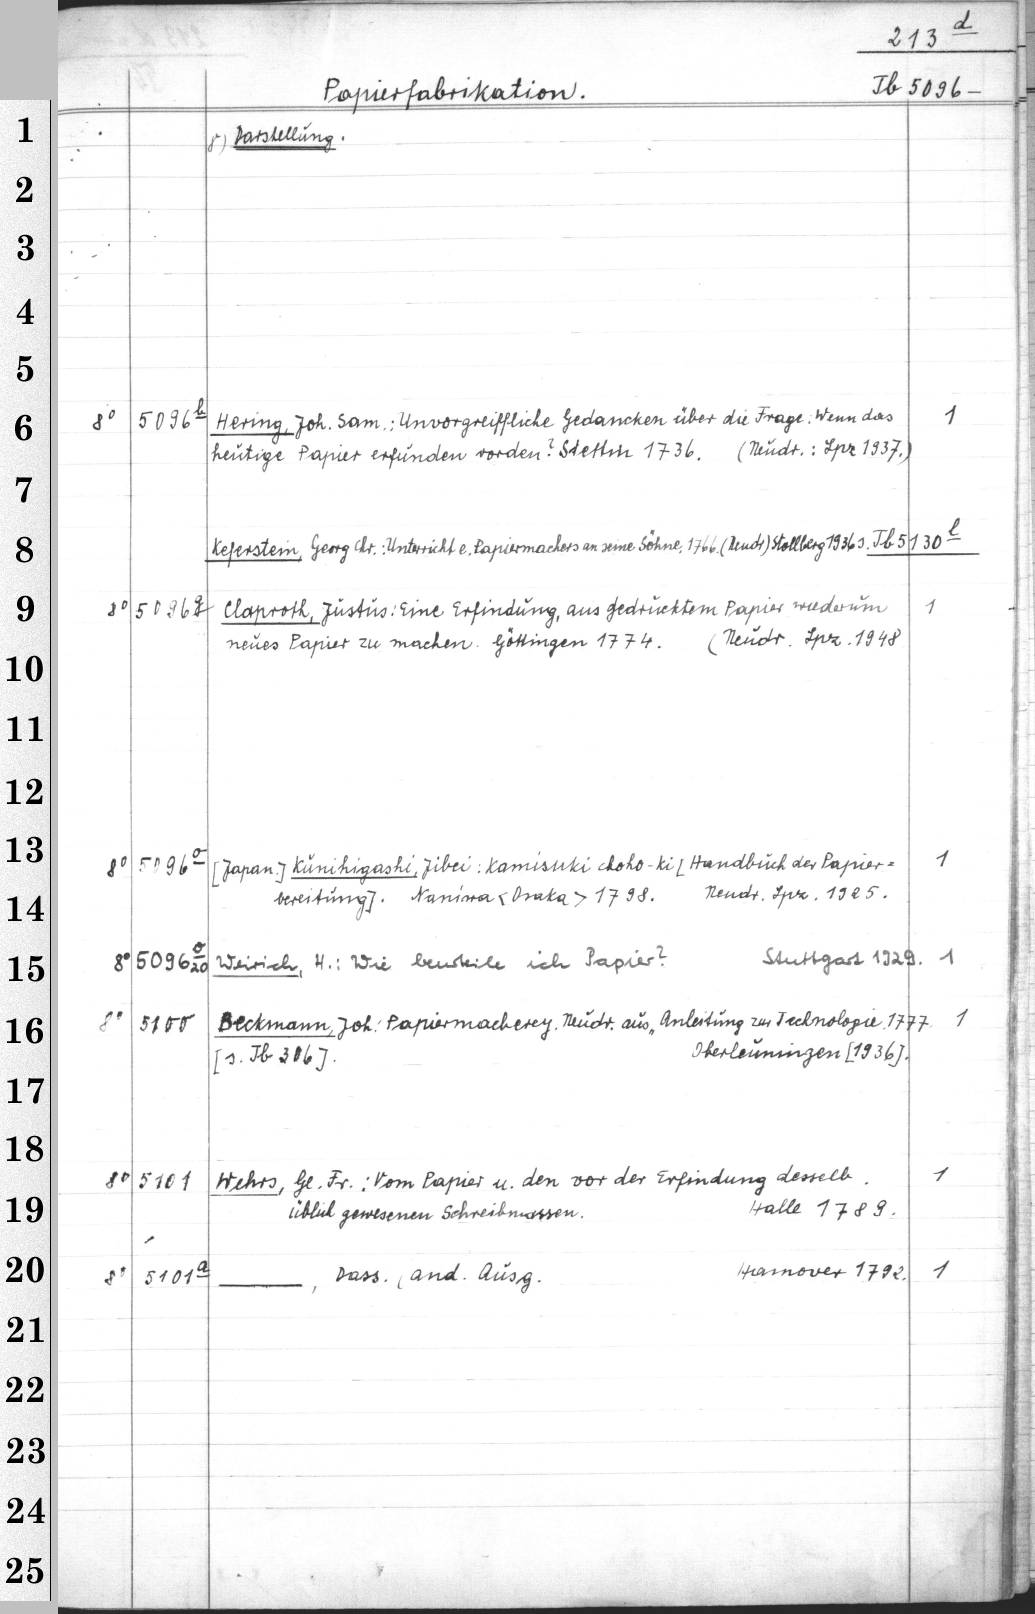 213 d
Papierfabrikation. Tb 5096 –
1
γ) Darstellung.
2
3
4
5
6 8° 5096 b Hering, Joh. Sam.: Unvorgreiffliche Gedancken über die Frage: Wenn das 1
heutige Papier erfunden worden? Stettin 1736. (Neudr.: Lpz 1937.)
7
8 Keferstein, Georg Chr.: Unterricht e. Papiermachers an seine Söhne, 1766. (Neudr) Stollberg 1936 s. Tb 5130 l
9 8° 5096 g Claproth, Justus: Eine Erfindung, aus gedrucktem Papier wiederum 1
neues Papier zu machen. Göttingen 1774. (Neudr. Lpz. 1948
10
11
12
13 8° 5096 o [Japan.] Kunihigashi, Jibei: Kamisuki choho-ki [Handbuch der Papier= 1
14 bereitung]. Naniwa <Osaka> 1798. Neudr. Lpz. 1925.
15 8° 5096 o/20 Weirich, H.: Wie beurteile ich Papier? Stuttgart 1929. 1
16 8° 5100 Beckmann, Joh.: Papiermacherey. Neudr. aus „Anleitung zur Technologie. 1777 1
[s. Tb 306]. Oberleuningen [1936].
17
18 8° 5101 Wehrs, Ge. Fr.: Vom Papier u. den vor der Erfindung desselb. 1
19 üblich gewesenen Schreibmassen. Halle 1789.
20 8° 5101 a ———, Dass. (and. Ausg. Hannover 1792. 1
21
22
23
24
25